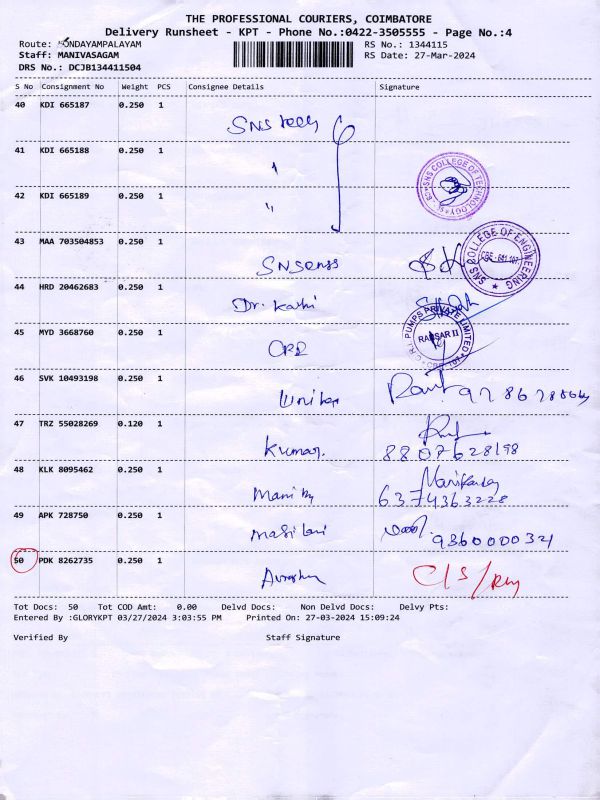 THE PROFESSIONAL COURIERS, COIMBATORE
Delivery Runsheet - KPT - Phone No.:0422-3505555 - Page No.:4
Route: KONDAYAMPALAYAM RS No.: 1344115
Staff: MANIVASAGAM RS Date: 27-Mar-2024
DRS No.: DCJB134411504
S No Consignment No Weight PCS Consignee Details Signature
40 KDI 665187 0.250 1
SNS tech
41 KDI 665188 0.250 1
"
SNS COLLEGE OF TECHNOLOGY
42 KDI 665189 0.250 1
"
43 MAA 703504853 0.250 1
SNS COLLEGE OF ENGINEERING
CBE - 641 107
44 HRD 20462683 0.250 1
Dr. Kathi
45 MYD 3668760 0.250 1
C.R.I. PUMPS PRIVATE LIMITED
CRI
46 SVK 10493198 0.250 1
47 TRZ 55028269 0.120 1
Kumar. 8807628198
48 KLK 8095462 0.250 1
Mani 6374363228
49 APK 728750 0.250 1
9360000321
50 PDK 8262735 0.250 1
Tot Docs: 50 Tot COD Amt: 0.00 Delvd Docs: Non Delvd Docs: Delvy Pts:
Entered By :GLORYKPT 03/27/2024 3:03:55 PM Printed On: 27-03-2024 15:09:24
Verified By Staff Signature